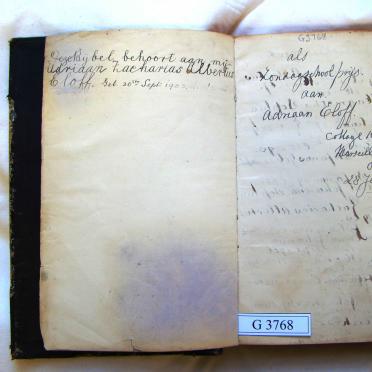 Deze Bijbel behoort aan mij
Adriaan Zacharias Albertus
Eloff. Geb. 20ste Sept. 1902
G3768
als
Zondagschool prijs
aan
Adriaan Eloff
College
Marseill
G 3768